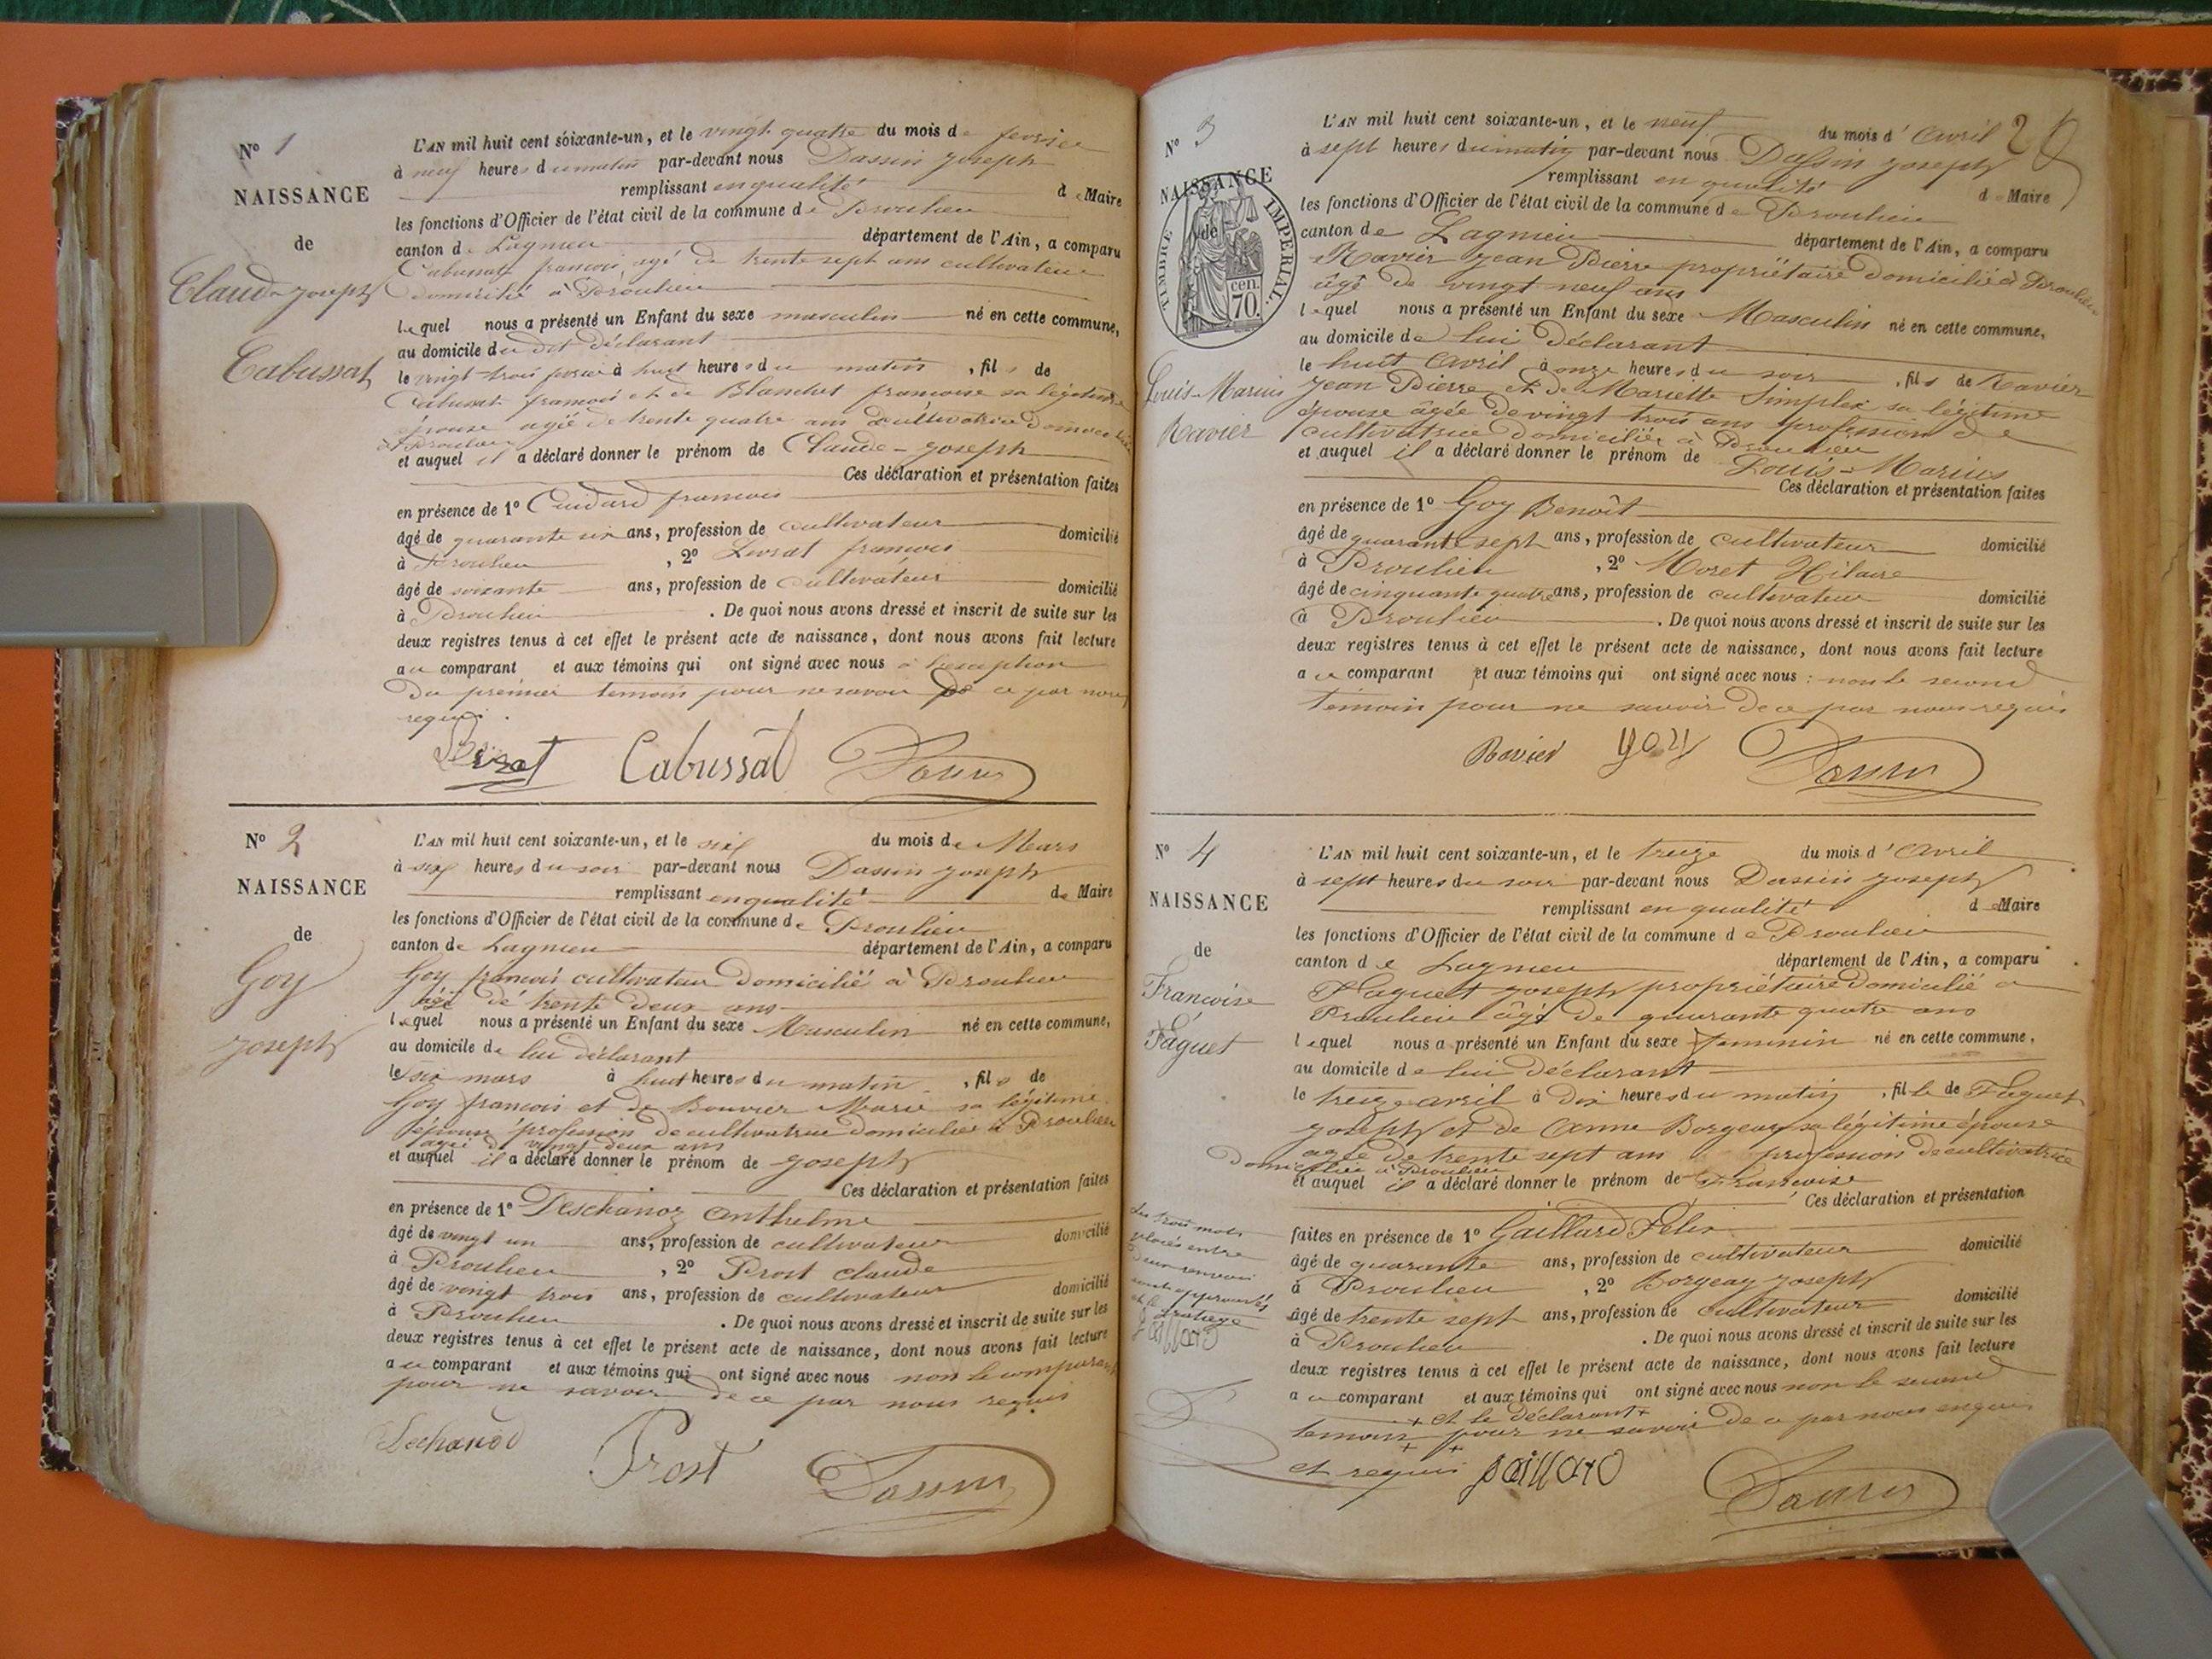 N° 1
NAISSANCE
de
Claude-joseph
Cabussat
L'AN mil huit cent soixante-un, et le vingt-quatre du mois de fevrier
à neuf heures du matin par-devant nous Dassin joseph
remplissant en qualité de Maire
les fonctions d'Officier de l'état civil de la commune de Proulieu
canton de Lagnieu département de l'Ain, a comparu
Cabussat francois, agé de trente sept ans cultivateur
domicilié à Proulieu
lequel nous a présenté un Enfant du sexe masculin né en cette commune,
au domicile du dit déclarant
le vingt-trois fevrier à huit heures du matin , fils de
Cabussat francois et de Blanchet francoise sa légitime
épouse agée de trente quatre ans cultivatrice domiciliée
à Proulieu
et auquel il a déclaré donner le prénom de Claude-joseph
Ces déclaration et présentation faites
en présence de 1° Cuidard francois
âgé de quarante six ans, profession de cultivateur domicilié
à Proulieu , 2° Livrat francois
âgé de soixante ans, profession de cultivateur domicilié
à Proulieu . De quoi nous avons dressé et inscrit de suite sur les
deux registres tenus à cet effet le présent acte de naissance, dont nous avons fait lecture
au comparant et aux témoins qui ont signé avec nous à l'exception
du premier temoin pour ne savoir de ce par nous
requis.
Cabussat Dassin
N° 2
NAISSANCE
de
Goy
joseph
L'AN mil huit cent soixante-un, et le six du mois de Mars
à six heures du soir par-devant nous Dassin joseph
remplissant en qualité de Maire
les fonctions d'Officier de l'état civil de la commune de Proulieu
canton de Lagnieu département de l'Ain, a comparu
Goy francois cultivateur domicilié à Proulieu
agé de trente deux ans
lequel nous a présenté un Enfant du sexe Masculin né en cette commune,
au domicile de lui déclarant
le six mars à huit heures du matin , fils de
Goy francois et de Bouvier Marie sa légitime
épouse profession de cultivatrice domiciliée à Proulieu
agée de vingt-deux ans
et auquel il a déclaré donner le prénom de joseph
Ces déclaration et présentation faites
en présence de 1° Deschanoz Anthelme
âgé de vingt un ans, profession de cultivateur domicilié
à Proulieu , 2° Prost claude
âgé de vingt trois ans, profession de cultivateur domicilié
à Proulieu . De quoi nous avons dressé et inscrit de suite sur les
deux registres tenus à cet effet le présent acte de naissance, dont nous avons fait lecture
au comparant et aux témoins qui ont signé avec nous non le comparant
pour ne savoir de ce par nous requis
Prost Dassin
28
N° 3
NAISSANCE
de
TIMBRE IMPERIAL.
cen.
70.
Louis-Marius
Ravier
L'AN mil huit cent soixante-un, et le neuf du mois d'Avril
à sept heures du matin par-devant nous Dassin joseph
remplissant en qualité de Maire
les fonctions d'Officier de l'état civil de la commune de Proulieu
canton de Lagnieu département de l'Ain, a comparu
Ravier jean Pierre propriétaire domicilié à Proulieu
âgé de vingt neuf ans
lequel nous a présenté un Enfant du sexe Masculin né en cette commune,
au domicile de lui déclarant
le huit Avril à onze heures du soir , fils de Ravier
jean Pierre et de Mariette Simplex sa légitime
épouse âgée de vingt trois ans profession de
cultivatrice domiciliée à Proulieu
et auquel il a déclaré donner le prénom de Louis-Marius
Ces déclaration et présentation faites
en présence de 1° Goy Benoît
âgé de quarante sept ans, profession de cultivateur domicilié
à Proulieu , 2° Moret Hilaire
âgé de cinquante quatre ans, profession de cultivateur domicilié
à Proulieu . De quoi nous avons dressé et inscrit de suite sur les
deux registres tenus à cet effet le présent acte de naissance, dont nous avons fait lecture
au comparant et aux témoins qui ont signé avec nous : non le second
témoin pour ne savoir de ce par nous requis
Ravier goy Dassin
N° 4
NAISSANCE
de
Francoise
Faguet
L'AN mil huit cent soixante-un, et le treize du mois d'Avril
à sept heures du soir par-devant nous Dassin joseph
remplissant en qualité de Maire
les fonctions d'Officier de l'état civil de la commune de Proulieu
canton de Lagnieu département de l'Ain, a comparu
Faguet joseph propriétaire domicilié à
Proulieu âgé de quarante quatre ans
lequel nous a présenté un Enfant du sexe feminin né en cette commune,
au domicile de lui déclarant
le treize avril à dix heures du matin , fille de Faguet
joseph et de Anne Borgeay sa légitime épouse
agée de trente sept ans profession de cultivatrice
domiciliée à Proulieu
et auquel il a déclaré donner le prénom de Francoise
Ces déclaration et présentation
faites en présence de 1° Gaillard Félix
âgé de quarante ans, profession de cultivateur domicilié
à Proulieu , 2° Borgeay joseph
âgé de trente sept ans, profession de cultivateur domicilié
à Proulieu . De quoi nous avons dressé et inscrit de suite sur les
deux registres tenus à cet effet le présent acte de naissance, dont nous avons fait lecture
au comparant et aux témoins qui ont signé avec nous non le second
+ et le déclarant +
temoin pour ne savoir de ce par nous enquis
et requis gaillard Dassin
Les trois mots
placés entre
deux renvois
sont approuvés
gaillard